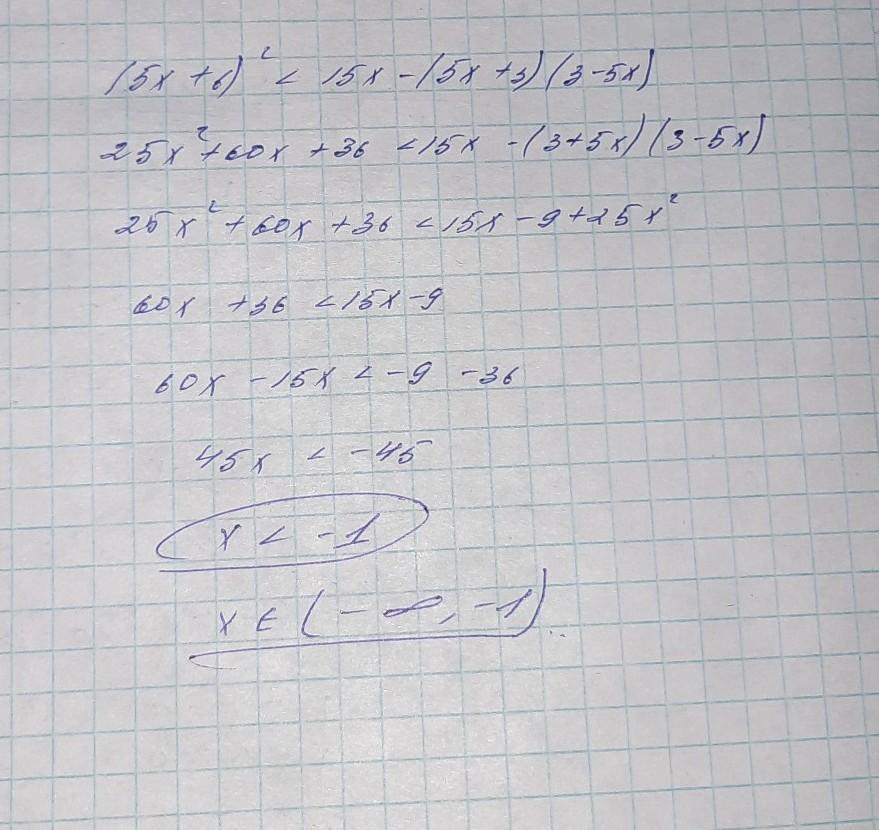 (5x+6)² < 15x-(5x+3)(3-5x)
25x²+60x+36 <15x -(3+5x)(3-5x)
25x²+60x+36 <15x-9+25x²
60x +36 <15x-9
60x -15x < -9 -36
45x < -45
x < -1
x ∈ (-∞, -1)